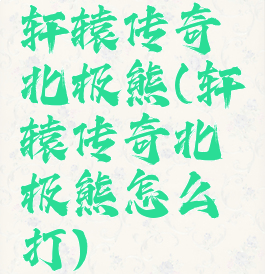 轩辕传奇
北极熊(轩
辕传奇北
极熊怎么
打)